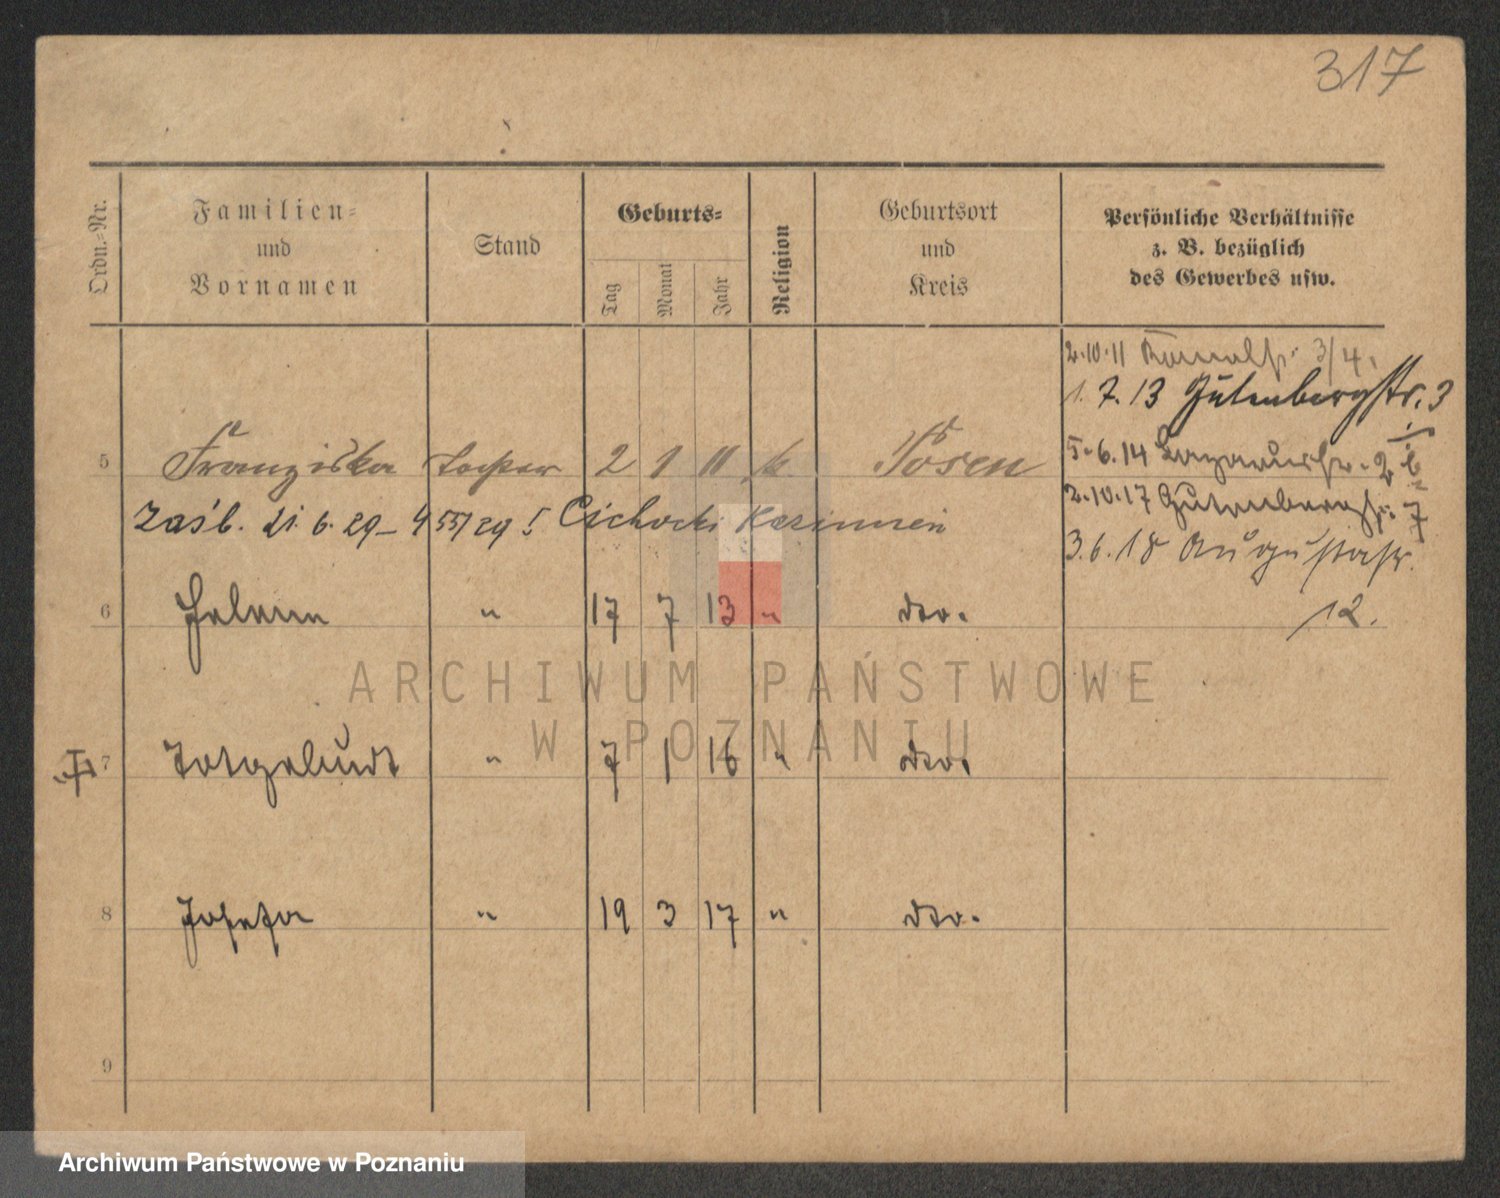 317
Ordn.-Nr.
Familien-
und
Vornamen
Stand
Geburts-
Tag
Monat
Jahr
Religion
Geburtsort
und
Kreis
Persönliche Verhältnisse
z. B. bezüglich
des Gewerbes usw.
2.10.11 3/4.
1. 7. 13 Gutenbergstr. 3
5 Franziska Tochter 2 1 11 k. Posen
5.6.14 2
2.10.17 Gutenbergstr. 7
zaśl. 21. 6. 29 – 455/29 Cichocki
3.6.18 Augustastr.
12.
6 Helene " 17 7 13 " dto.
ARCHIWUM PAŃSTWOWE
W POZNANIU
7 Totgeburt " 7 1 16 " dto.
8 Josefa " 19 3 17 " dto.
9
Archiwum Państwowe w Poznaniu